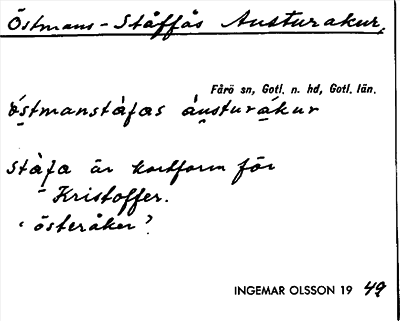 Östmans-Ståffås Austurakur,
Fårö sn, Gotl. n. hd, Gotl. län.
ó̱stmanstà̱fas áu̱sturá̱kur
stà̱fa är kortform för
Kristoffer.
‘österåker’?
INGEMAR OLSSON 19 49